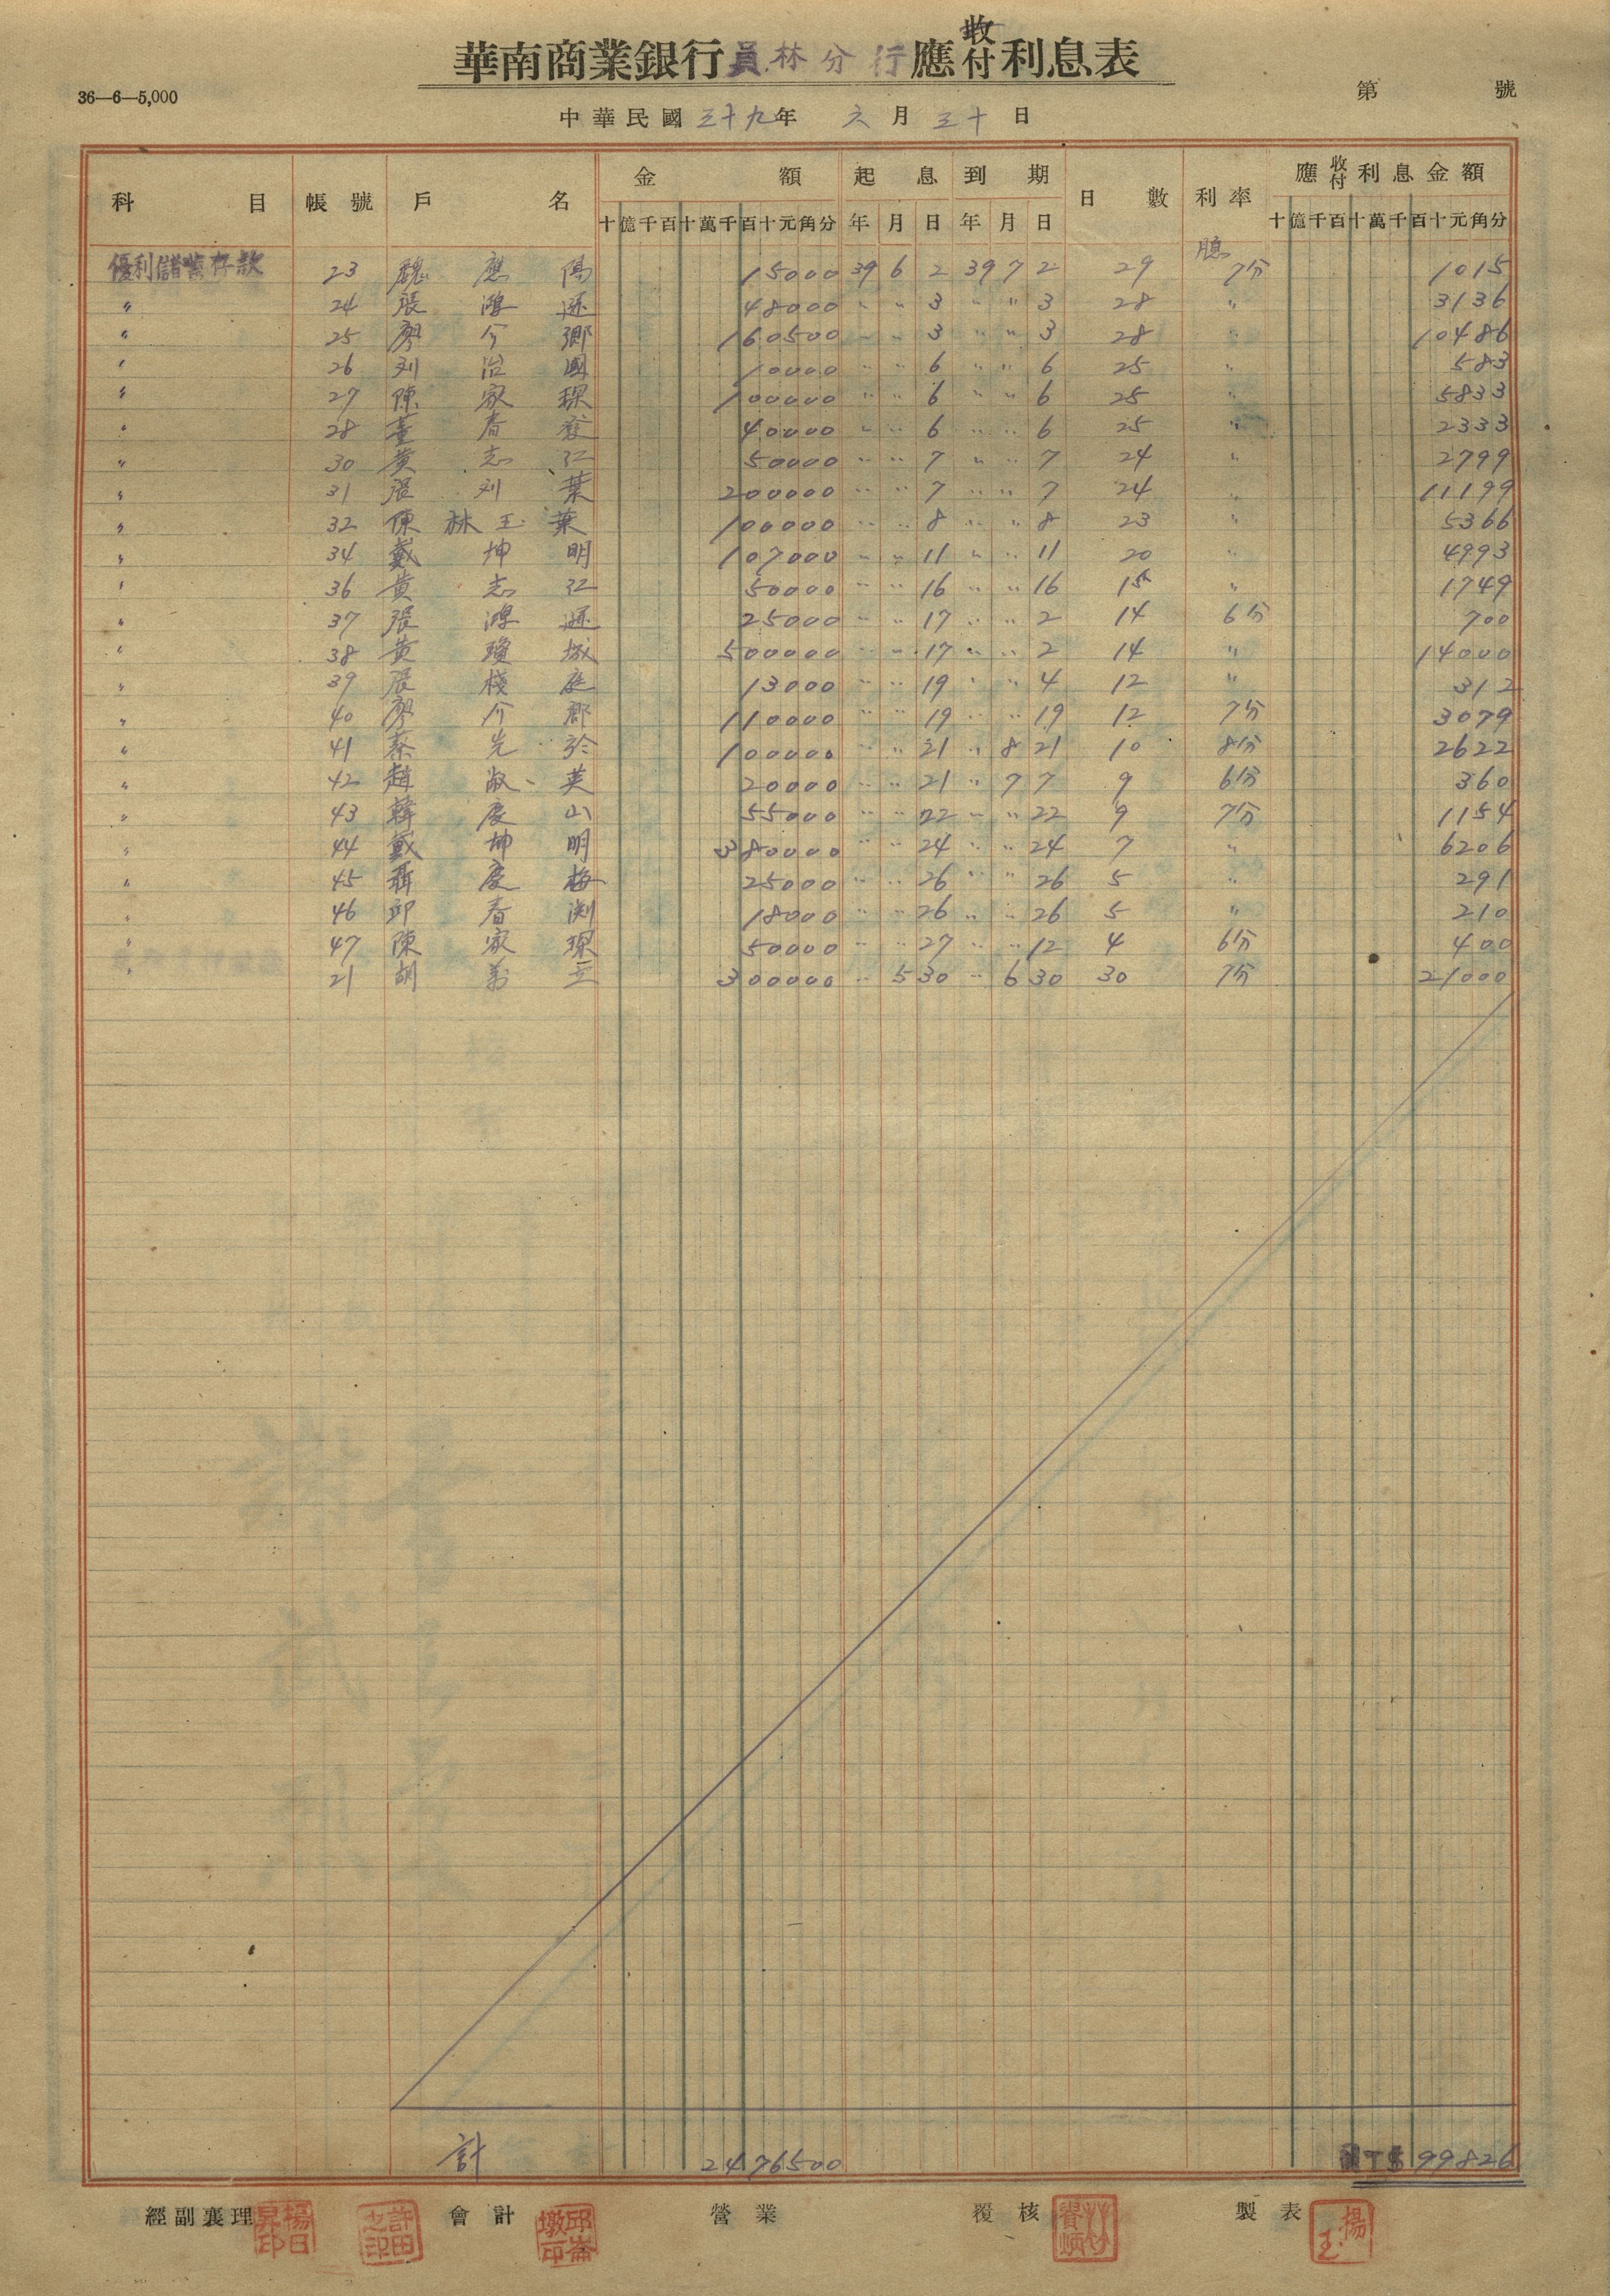 華南商業銀行員林分行應收付利息表
36—6—5,000
第 號
中華民國三十九年 六月三十日
科目 帳號 戶名 金額 起息 到期 日數 利率 應收付利息金額
十億千百十萬千百十元角分 年月日 年月日 十億千百十萬千百十元角分
優利儲蓄存款 23 魏應陽 15000 39 6 2 39 7 2 29 7分 1015
〃 24 張鴻遜 48000 〃 〃 3 〃 〃 3 28 〃 3136
〃 25 廖今鄉 160500 〃 〃 3 〃 〃 3 28 〃 10486
〃 26 刘治國 10000 〃 〃 6 〃 〃 6 25 〃 583
〃 27 陳家琛 100000 〃 〃 6 〃 〃 6 25 〃 5833
〃 28 董春發 40000 〃 〃 6 〃 〃 6 25 〃 2333
〃 30 黄志江 50000 〃 〃 7 〃 〃 7 24 〃 2799
〃 31 張刘葉 200000 〃 〃 7 〃 〃 7 24 〃 11199
〃 32 陳林玉葉 100000 〃 〃 8 〃 〃 8 23 〃 5366
〃 34 戴坤明 107000 〃 〃 11 〃 〃 11 20 〃 4993
〃 36 黄志江 50000 〃 〃 16 〃 〃 16 15 〃 1749
〃 37 張鴻遜 25000 〃 〃 17 〃 〃 2 14 6分 700
〃 38 黄瓊城 500000 〃 〃 17 〃 〃 2 14 〃 14000
〃 39 張棧庭 13000 〃 〃 19 〃 〃 4 12 〃 312
〃 40 廖介郡 110000 〃 〃 19 〃 〃 19 12 7分 3079
〃 41 蔡先於 100000 〃 〃 21 〃 8 21 10 8分 2622
〃 42 趙淑英 20000 〃 〃 21 〃 7 7 9 6分 360
〃 43 韓慶山 55000 〃 〃 22 〃 〃 22 9 7分 1154
〃 44 戴坤明 380000 〃 〃 24 〃 〃 24 7 〃 6206
〃 45 聶慶梅 25000 〃 〃 26 〃 〃 26 5 〃 291
〃 46 邱春渕 18000 〃 〃 26 〃 〃 26 5 〃 210
〃 47 陳家琛 50000 〃 〃 27 〃 〃 12 4 6分 400
〃 21 胡萬 300000 〃 5 30 〃 6 30 30 7分 21000
計 2476500 NT$99826
經副襄理 會計 營業 覆核 製表
楊日昇印 許田之印 邱崙墩印 楊玉